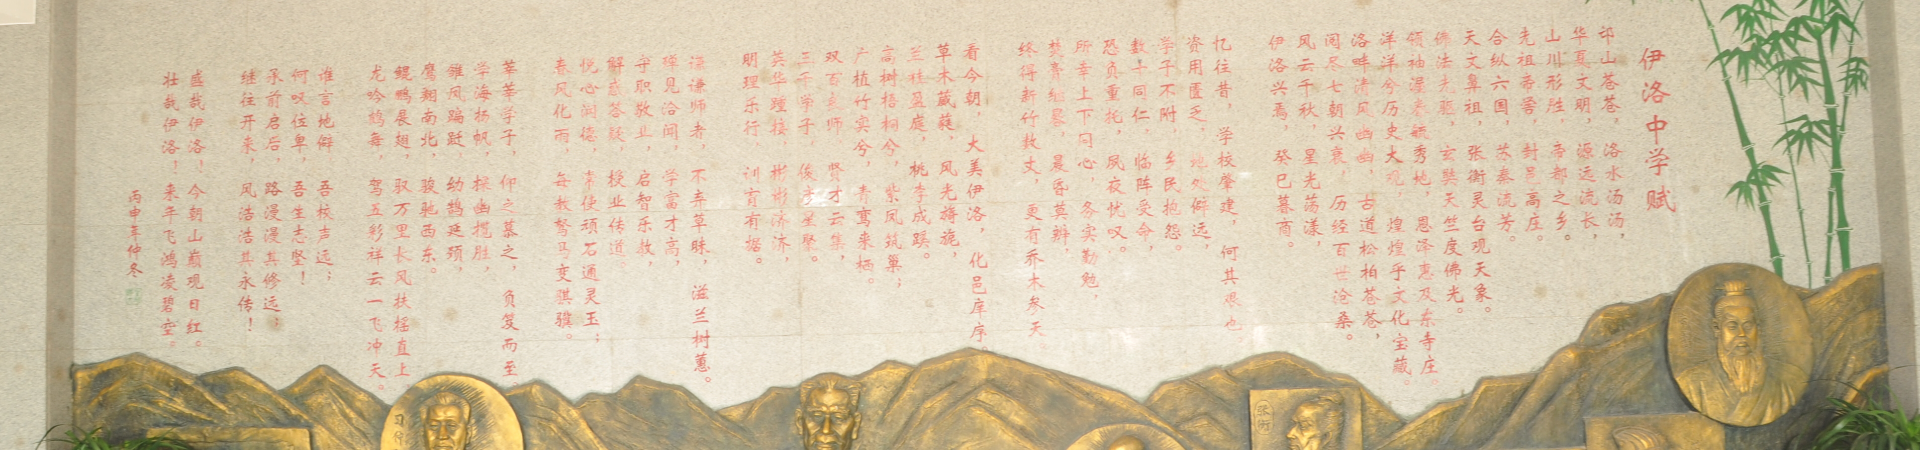 伊洛中学赋
邙山苍苍，洛水汤汤，
华夏文明，源远流长，
山川形胜，帝都之乡。
先祖帝喾，封邑高庄。
合纵六国，苏秦流芳。
天文鼻祖，张衡灵台观天象。
佛法先驱，玄奘天竺度佛光。
领袖毓秀地，恩泽惠及东寺庄。
洋洋兮历史大观，煌煌乎文化宝藏。
洛畔清风幽幽，古道松柏苍苍，
阅尽七朝兴衰，历经百世沧桑。
风云千秋，星光荡漾，
伊洛兴焉，癸巳暮商。
忆往昔，学校肇建，何其艰也，
资用匮乏，地处僻远，
学子不附，乡民抱怨。
数十同仁，临阵受命，
恐负重托，夙夜忧叹。
所幸上下同心，务实勤勉，
焚膏继晷，晨昏莫辨，
终得新竹数丈，更有乔木参天。
看今朝，大美伊洛，化邑庠序。
草木葳蕤，风光旖旎，
兰桂盈庭，桃李成蹊。
高树梧桐兮，紫凤筑巢；
广植竹实兮，青鸾来栖。
双百良师，贤才云集，
三千弟子，俊彦星聚。
英华踵接，彬彬济济，
明理乐行，训育有据。
谦谦师者，不弃草昧，滋兰树蕙。
殚见洽闻，学富才高，
守职敬业，启智乐教，
解惑答疑，授业传道。
悦心润德，常使顽石通灵玉；
春风化雨，每教驽马变骐骥。
莘莘学子，仰之慕之，负笈而至
学海扬帆，探幽揽胜，
雏凤踊跃，幼鹤延颈，
鹰翔南北，骏驰西东。
鲲鹏展翅，驭万里长风扶摇直上
龙吟鹤舞，驾五彩祥云一飞冲天。
谁言地僻，吾校声远；
何叹位卑，吾生志坚！
承前启后，路漫漫其修远；
继往开来，风浩浩其永传！
盛哉伊洛！今朝山巅观日红。
壮哉伊洛！来年飞鸿凌碧空。
丙申年仲冬
张衡